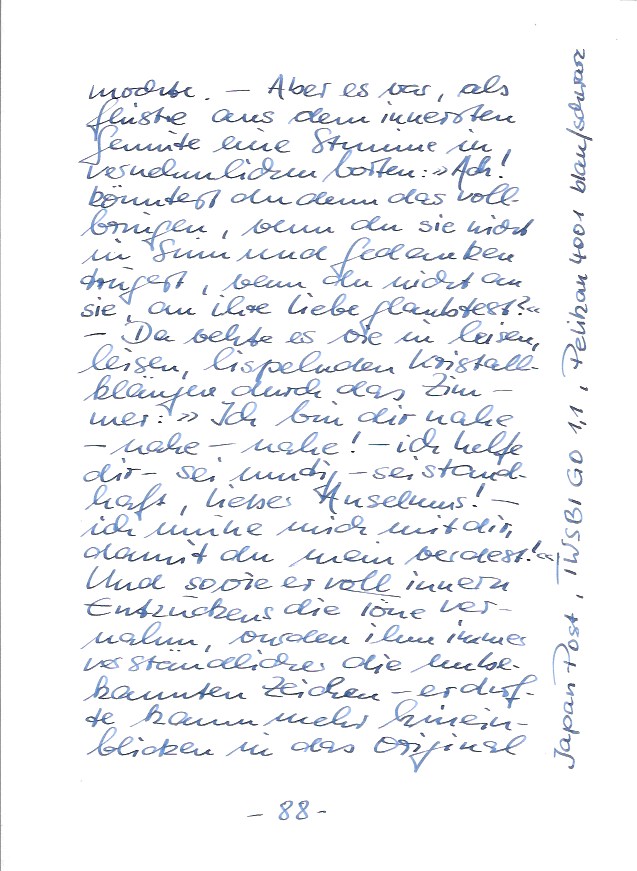 mochte. — Aber es war, als
flüstre aus dem innersten
Gemüte eine Stimme in
vernehmlichen Worten: »Ach!
könntest du denn das voll-
bringen, wenn du sie nicht
in Sinn und Gedanken
trügest, wenn du nicht an
sie, an ihre Liebe glaubtest?«
— Da wehte es wie in leisen,
leisen, lispelnden Kristall-
klängen durch das Zim-
mer: » Ich bin dir nahe
— nahe — nahe! — ich helfe
dir — sei mutig — sei stand-
haft, lieber Anselmus! —
ich mühe mich mit dir,
damit du mein werdest!«
Und sowie er voll innern
Entzückens die Töne ver-
nahm, wurden ihm immer
verständlicher die unbe-
kannten Zeichen — er durf-
te kaum mehr hinein-
blicken in das Original
- 88 -
Japan Post, TWSBI GO 1,1, Pelikan 4001 blau/schwarz